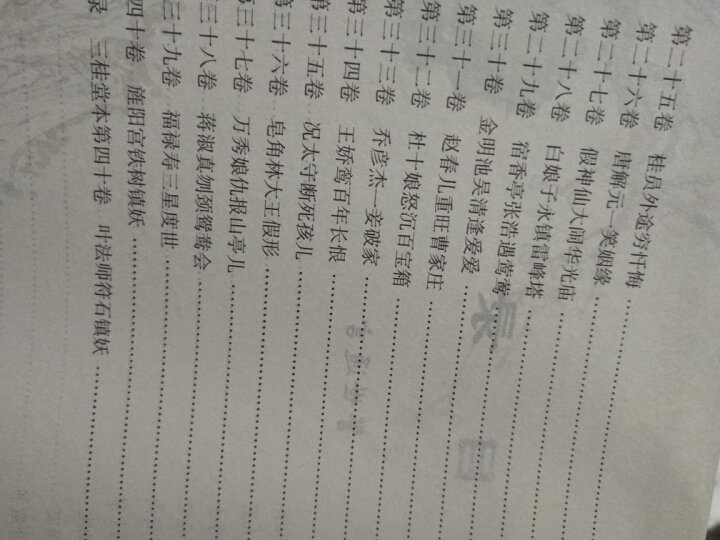 第二十五卷 桂员外途穷忏悔
第二十六卷 唐解元一笑姻缘
第二十七卷 假神仙大闹华光庙
第二十八卷 白娘子永镇雷峰塔
第二十九卷 宿香亭张浩遇莺莺
第三十卷 金明池吴清逢爱爱
第三十一卷 赵春儿重旺曹家庄
第三十二卷 杜十娘怒沉百宝箱
第三十三卷 乔彦杰一妾破家
第三十四卷 王娇鸾百年长恨
第三十五卷 况太守断死孩儿
第三十六卷 皂角林大王假形
第三十七卷 万秀娘仇报山亭儿
三十八卷 蒋淑真刎颈鸳鸯会
三十九卷 福禄寿三星度世
四十卷 旌阳宫铁树镇妖
录 三桂堂本第四十卷 叶法师符石镇妖
目